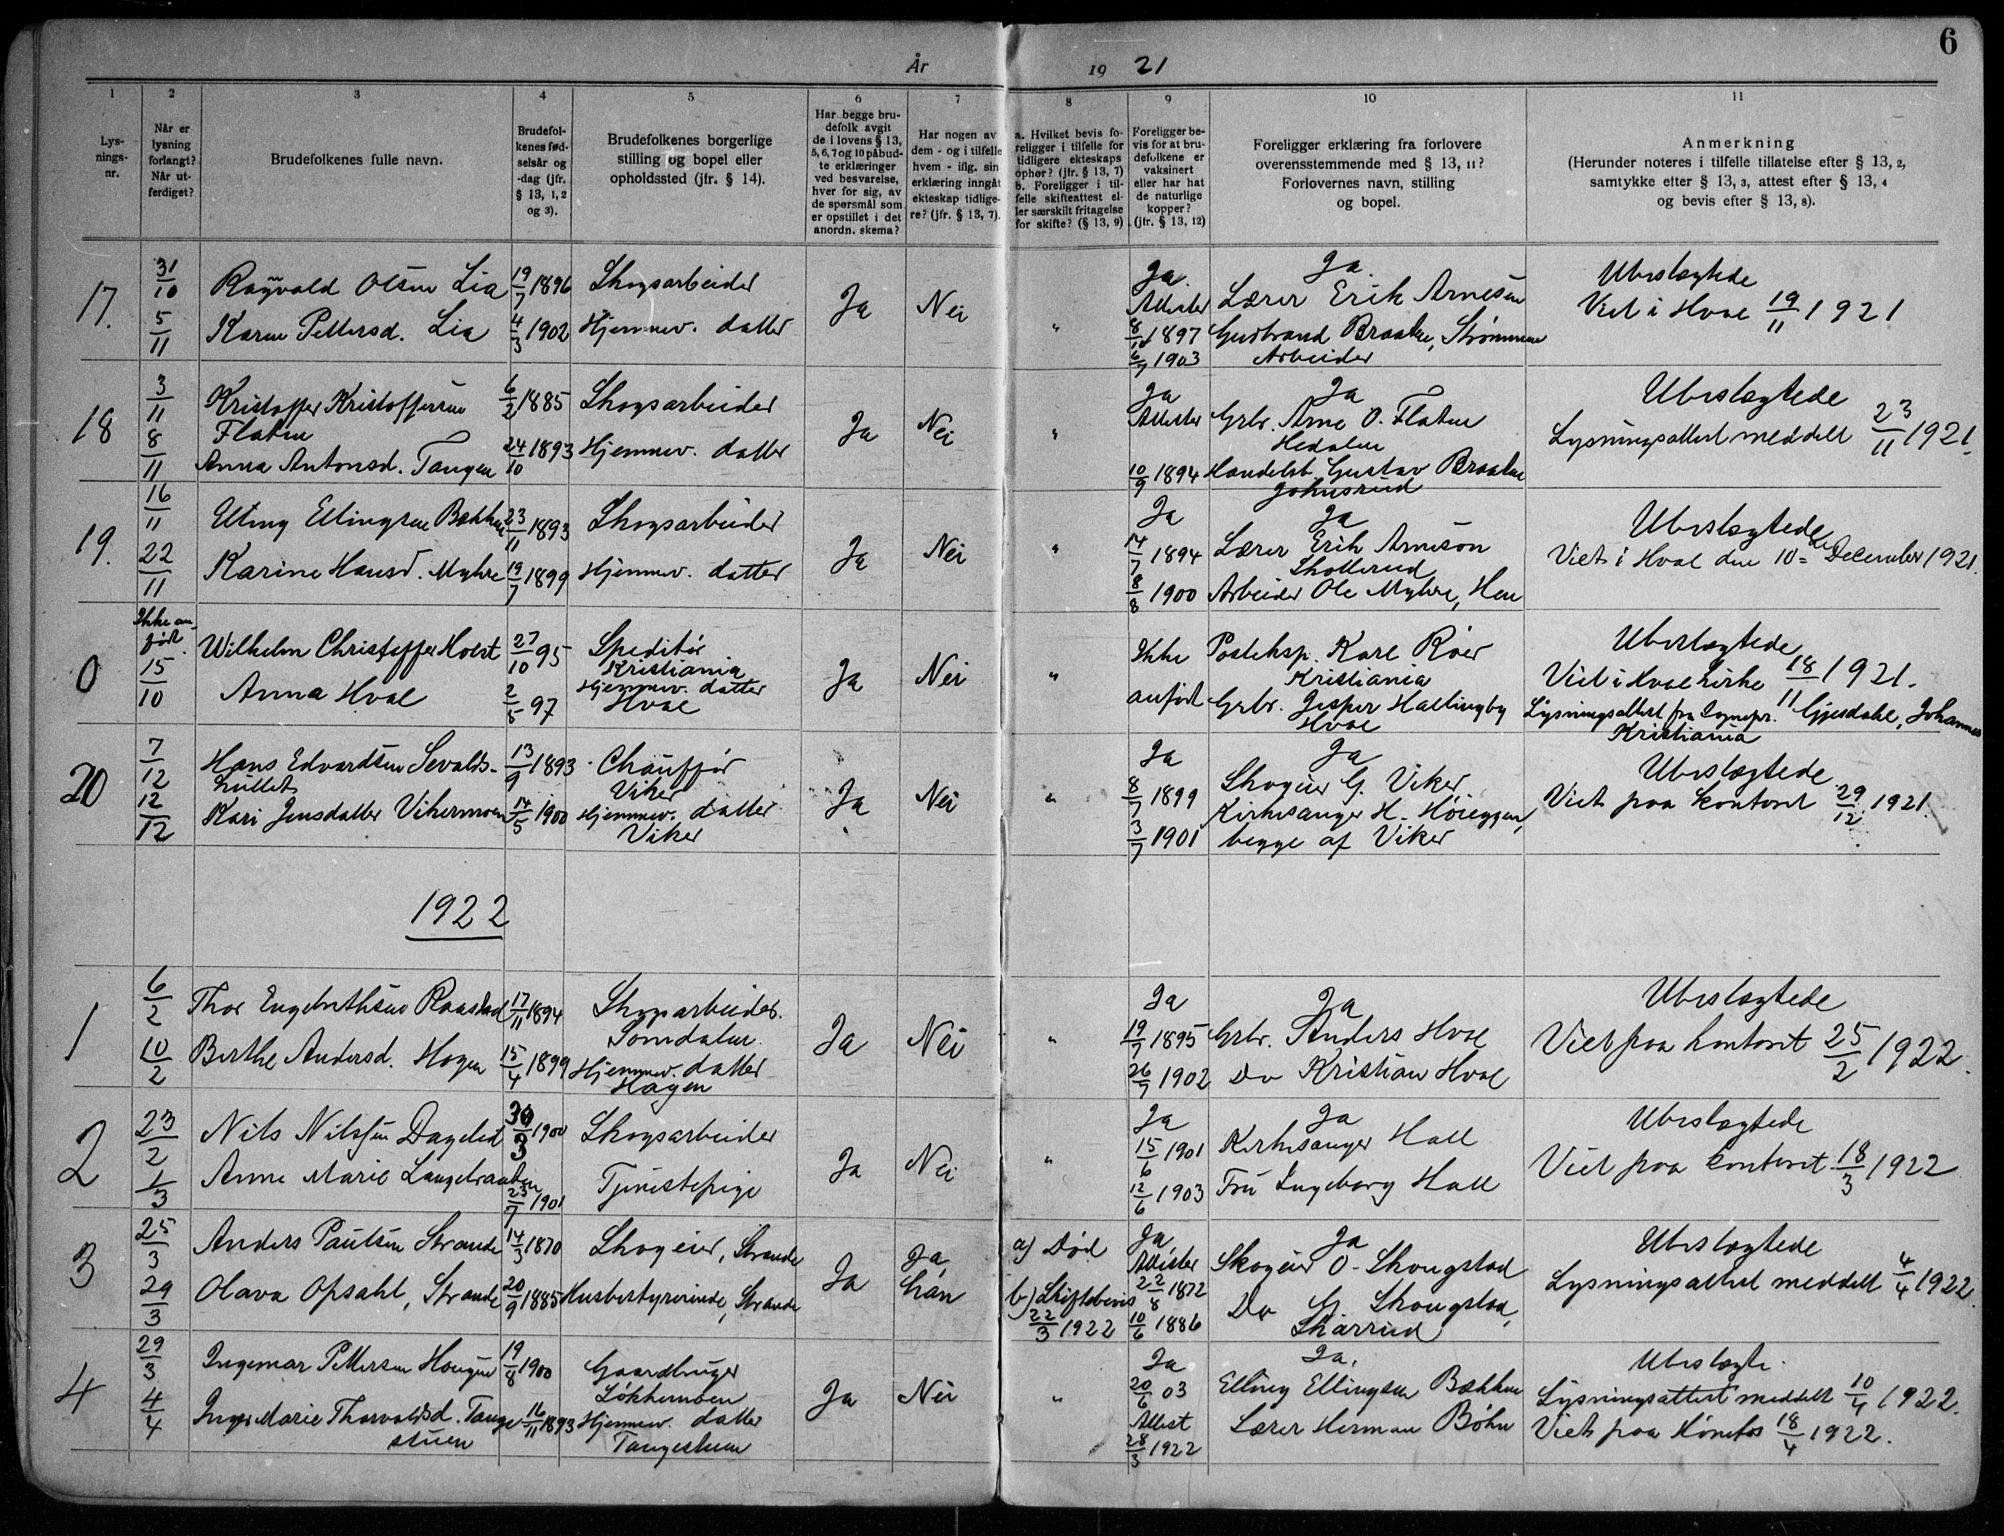 6
År 1921
1 2 3 4 5 6 7 8 9 10 11
Lys-
nings-
nr.
Når er
lysning
forlangt?
Når ut-
ferdiget?
Brudefolkenes fulle navn.
Brudefol-
kenes fød-
selsår og
-dag (jfr.
§ 13, 1, 2
og 3).
Brudefolkenes borgerlige
stilling og bopel eller
opholdssted (jfr. § 14).
Har begge bru-
defolk avgit
de i lovens § 13,
5, 6, 7 og 10 påbud-
te erklæringer
ved besvarelse,
hver for sig, av
de spørsmål som
er opstillet i det
anordn. skema?
Har nogen av
dem - og i tilfelle
hvem - iflg. sin
erklæring inngått
ekteskap tidlige-
re? (jfr. § 13, 7).
a. Hvilket bevis fo-
religger i tilfelle for
tidligere ekteskaps
ophør? (jfr. § 13, 7)
b. Foreligger i til-
felle skifteattest el-
ler særskilt fritagelse
for skifte? (§ 13, 9)
Foreligger be-
vis for at bru-
defolkene er
vaksinert
eller har hat
de naturlige
kopper?
(jfr. § 13, 12)
Foreligger erklæring fra forlovere
overensstemmende med § 13, 11?
Forlovernes navn, stilling
og bopel.
Anmerkning
(Herunder noteres i tilfelle tillatelse efter § 13, 2,
samtykke efter § 13, 3, attest efter § 13, 4
og bevis efter § 13, 8).
17. 31/10 Ragvald Olsen Lia 19/7 1896 Skogsarbeider Ja Nei " Ja. Attester Ja. Lærer Erik Arnesen Ubeslægtede
5/11 Karen Pettersd. Lia 4/3 1902 Hjemmev. datter 8/10 1897 Gudbrand Braaten, Strømmen Viet i Hval 19/11 1921
6/7 1903 Arbeider
18 3/11 Kristoffer Kristoffersen 6/2 1885 Skogsarbeider Ja Nei " Ja Attester Ja Grbr. Arne O. Flaten Ubeslægtede
8/11 Flaten Hedalen Lysningsattest meddelt 23/11 1921.
Anna Antonsd. Tangen 24/10 1893 Hjemmev. datter 10/9 1894 Handelsb. Gustav Braaten
Johnsrud
19. 16/11 Elling Ellingsen Bækken 23/11 1893 Skogsarbeider Ja Nei " Ja 14/7 1894 Ja Lærer Erik Arneson Ubeslægtede
Skollerud Viet i Hval den 10de December 1921.
22/11 Karine Hansd. Myhre 19/7 1899 Hjemmev. datter 8/8 1900 Arbeider Ole Myhre, Hen
0 Ikke an-
ført. Wilhelm Christoffer Holst 27/10 95 Speditør Ja Nei " Ikke Posteksp. Karl Röer Ubeslægtede
15/10 Kristiania Kristiania Viet i Hval kirke 18/11 1921.
Anna Hval 2/5 97 Hjemmev. datter anført Grbr. Jesper Hallingby Lysningsattest fra Sognepr. Gjesdahl, Johannes
Hval Hval Kristiania
20 7/12 Hans Edvardsen Sevalds- 13/9 1893 Chauffør Ja Nei " Ja 8/7 1899 Ja Skogeier G. Viker Ubeslægtede
hullet Viker Kirkesanger H. Høieggen, Viet paa kontoret 29/12 1921.
12/12 Kari Jensdatter Vikermoen 14/5 1900 Hjemmev. datter 3/7 1901 begge af Viker
Viker
1922
1 6/2 Thor Engebrethsen Raastad 17/11 1894 Skogsarbeider. Ja Nei " Ja 19/7 1895 Ja Grbr. Anders Hval Ubeslægtede
Somdalen. Viet paa kontoret 25/2 1922.
10/2 Berthe Andersd. Hagen 15/4 1899 Hjemmev. datter 26/7 1902 Do Kristian Hval
Hagen
2 23/2 Nils Nilssen Dagslid 30/3 1900 Skogsarbeider Ja Nei " Ja 15/6 1901 Ja Kirkesanger Hall Ubeslægtede
1/3 Anne Marie Langebraaten 23/7 1901 Tjenestepige 12/6 1903 Fru Ingeborg Hall Viet paa kontoret 18/3 1922
3 25/3 Anders Paulsen Strande 14/3 1870 Skogeier, Strande Ja Ja, han a) Død Ja Attester 22/8 1872 Ja Skogeier O. Skougstad Ubeslægtede
29/3 Olava Opsahl, Strande 20/9 1885 Husbestyrerinde, Strande b) Skiftebevis 22/3 1922 10/6 1886 Do G. Skougstad, Lysningsattest meddelt 4/4 1922.
Skarrud
4 29/3 Ingemar Pettersen Hougen 19/8 1900 Gaardbruger Ja Nei " Ja 20/6 03 Ja, Elling Ellingsen Bækken Ubeslægte.
Løkkemoen Lysningsattest meddelt 10/4 1922.
4/4 Inger Marie Thorvaldsd. Tange- 16/11 1893 Hjemmev. datter Attest 28/3 1922 Lærer Herman Bøhn Viet paa Hønefos 18/4 1922.
stuen Tangestuen